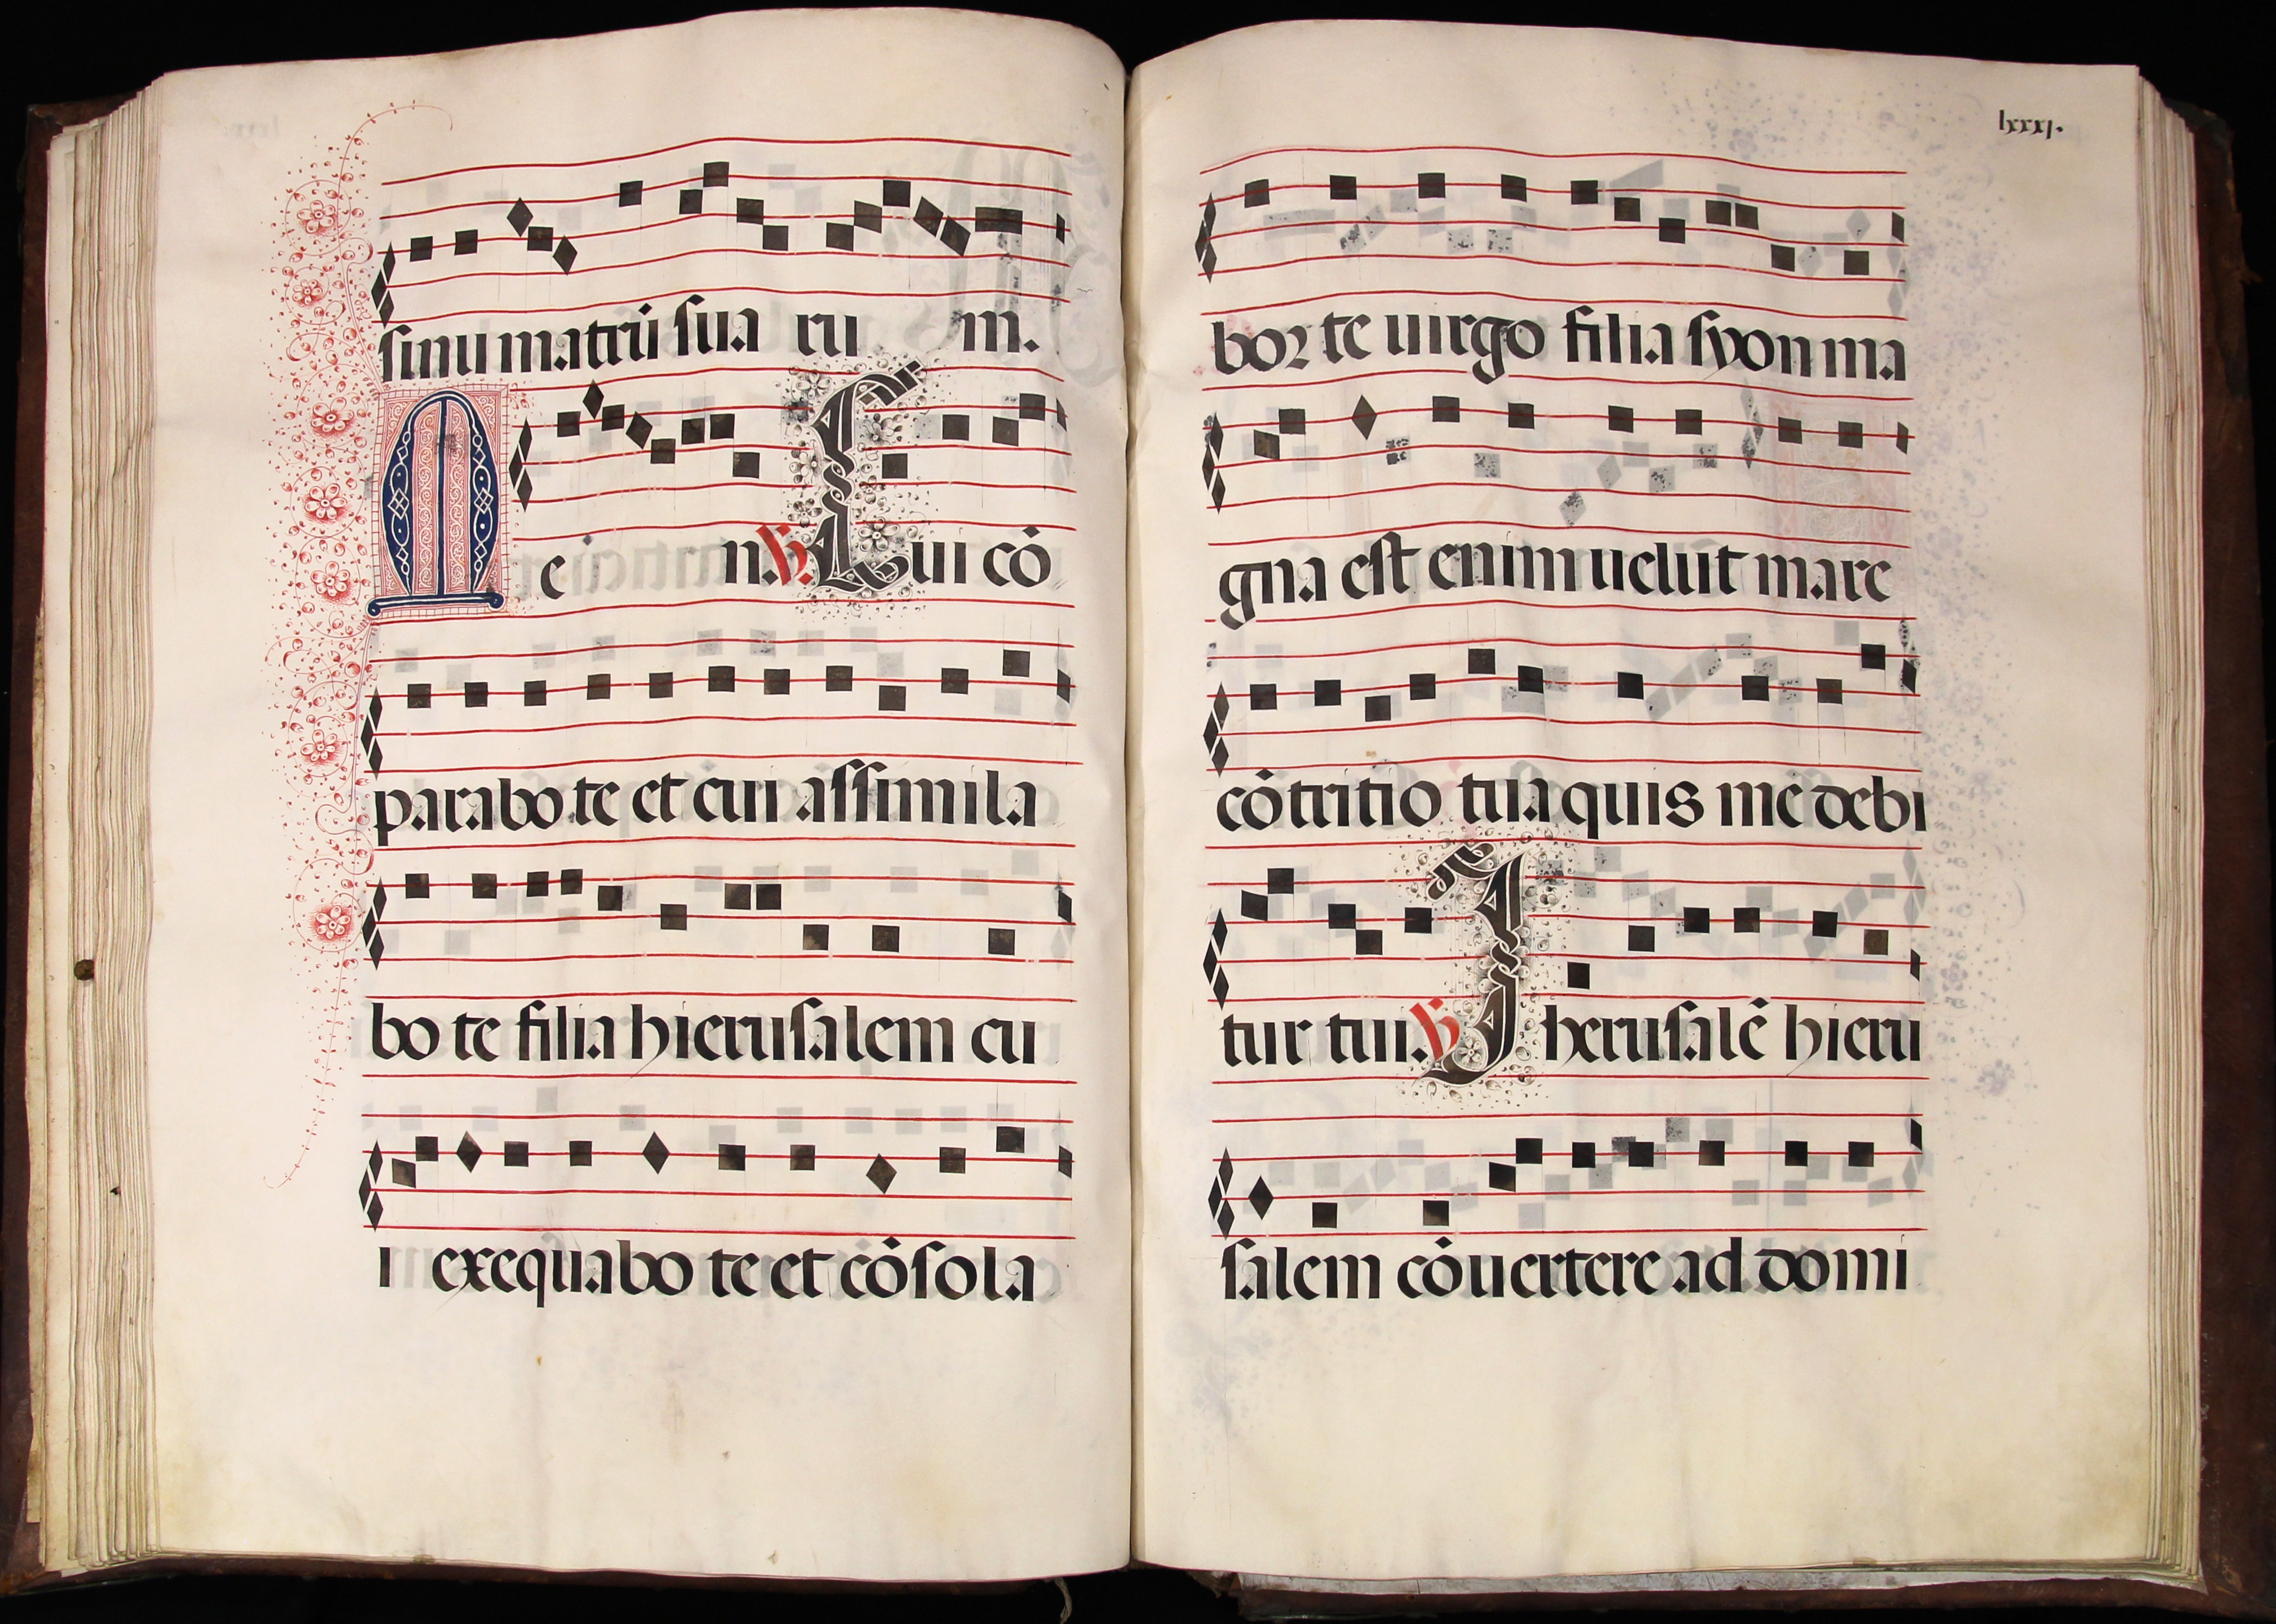 sinu matrū sua ru m.
M e m. V. Cui cō
parabo te et cui assimila
bo te filia hierusalem cu
i exequabo te et cōsola
lxxxj.
bor te uirgo filia syon ma
gna est enim uelut mare
cōtritio tua quis medebi
tur tui. V. Iherusalē hieru
salem cōuertere ad domi